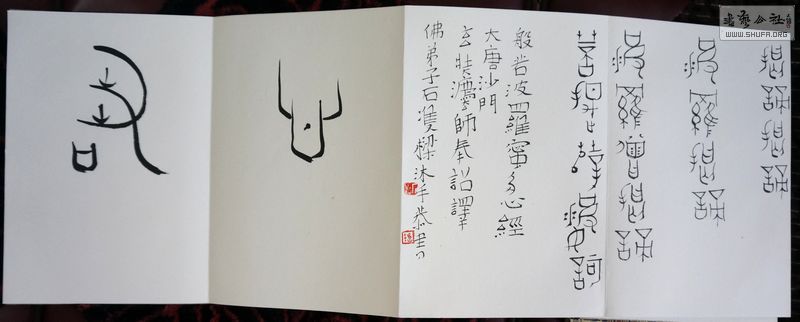 书艺公社
WWW.SHUFA.ORG
揭諦揭諦
波羅揭諦
波羅僧揭諦
菩提 婆訶
般若波羅蜜多心經
大唐沙門
玄奘灋師奉詔譯
佛弟子石雙樑沐手恭書